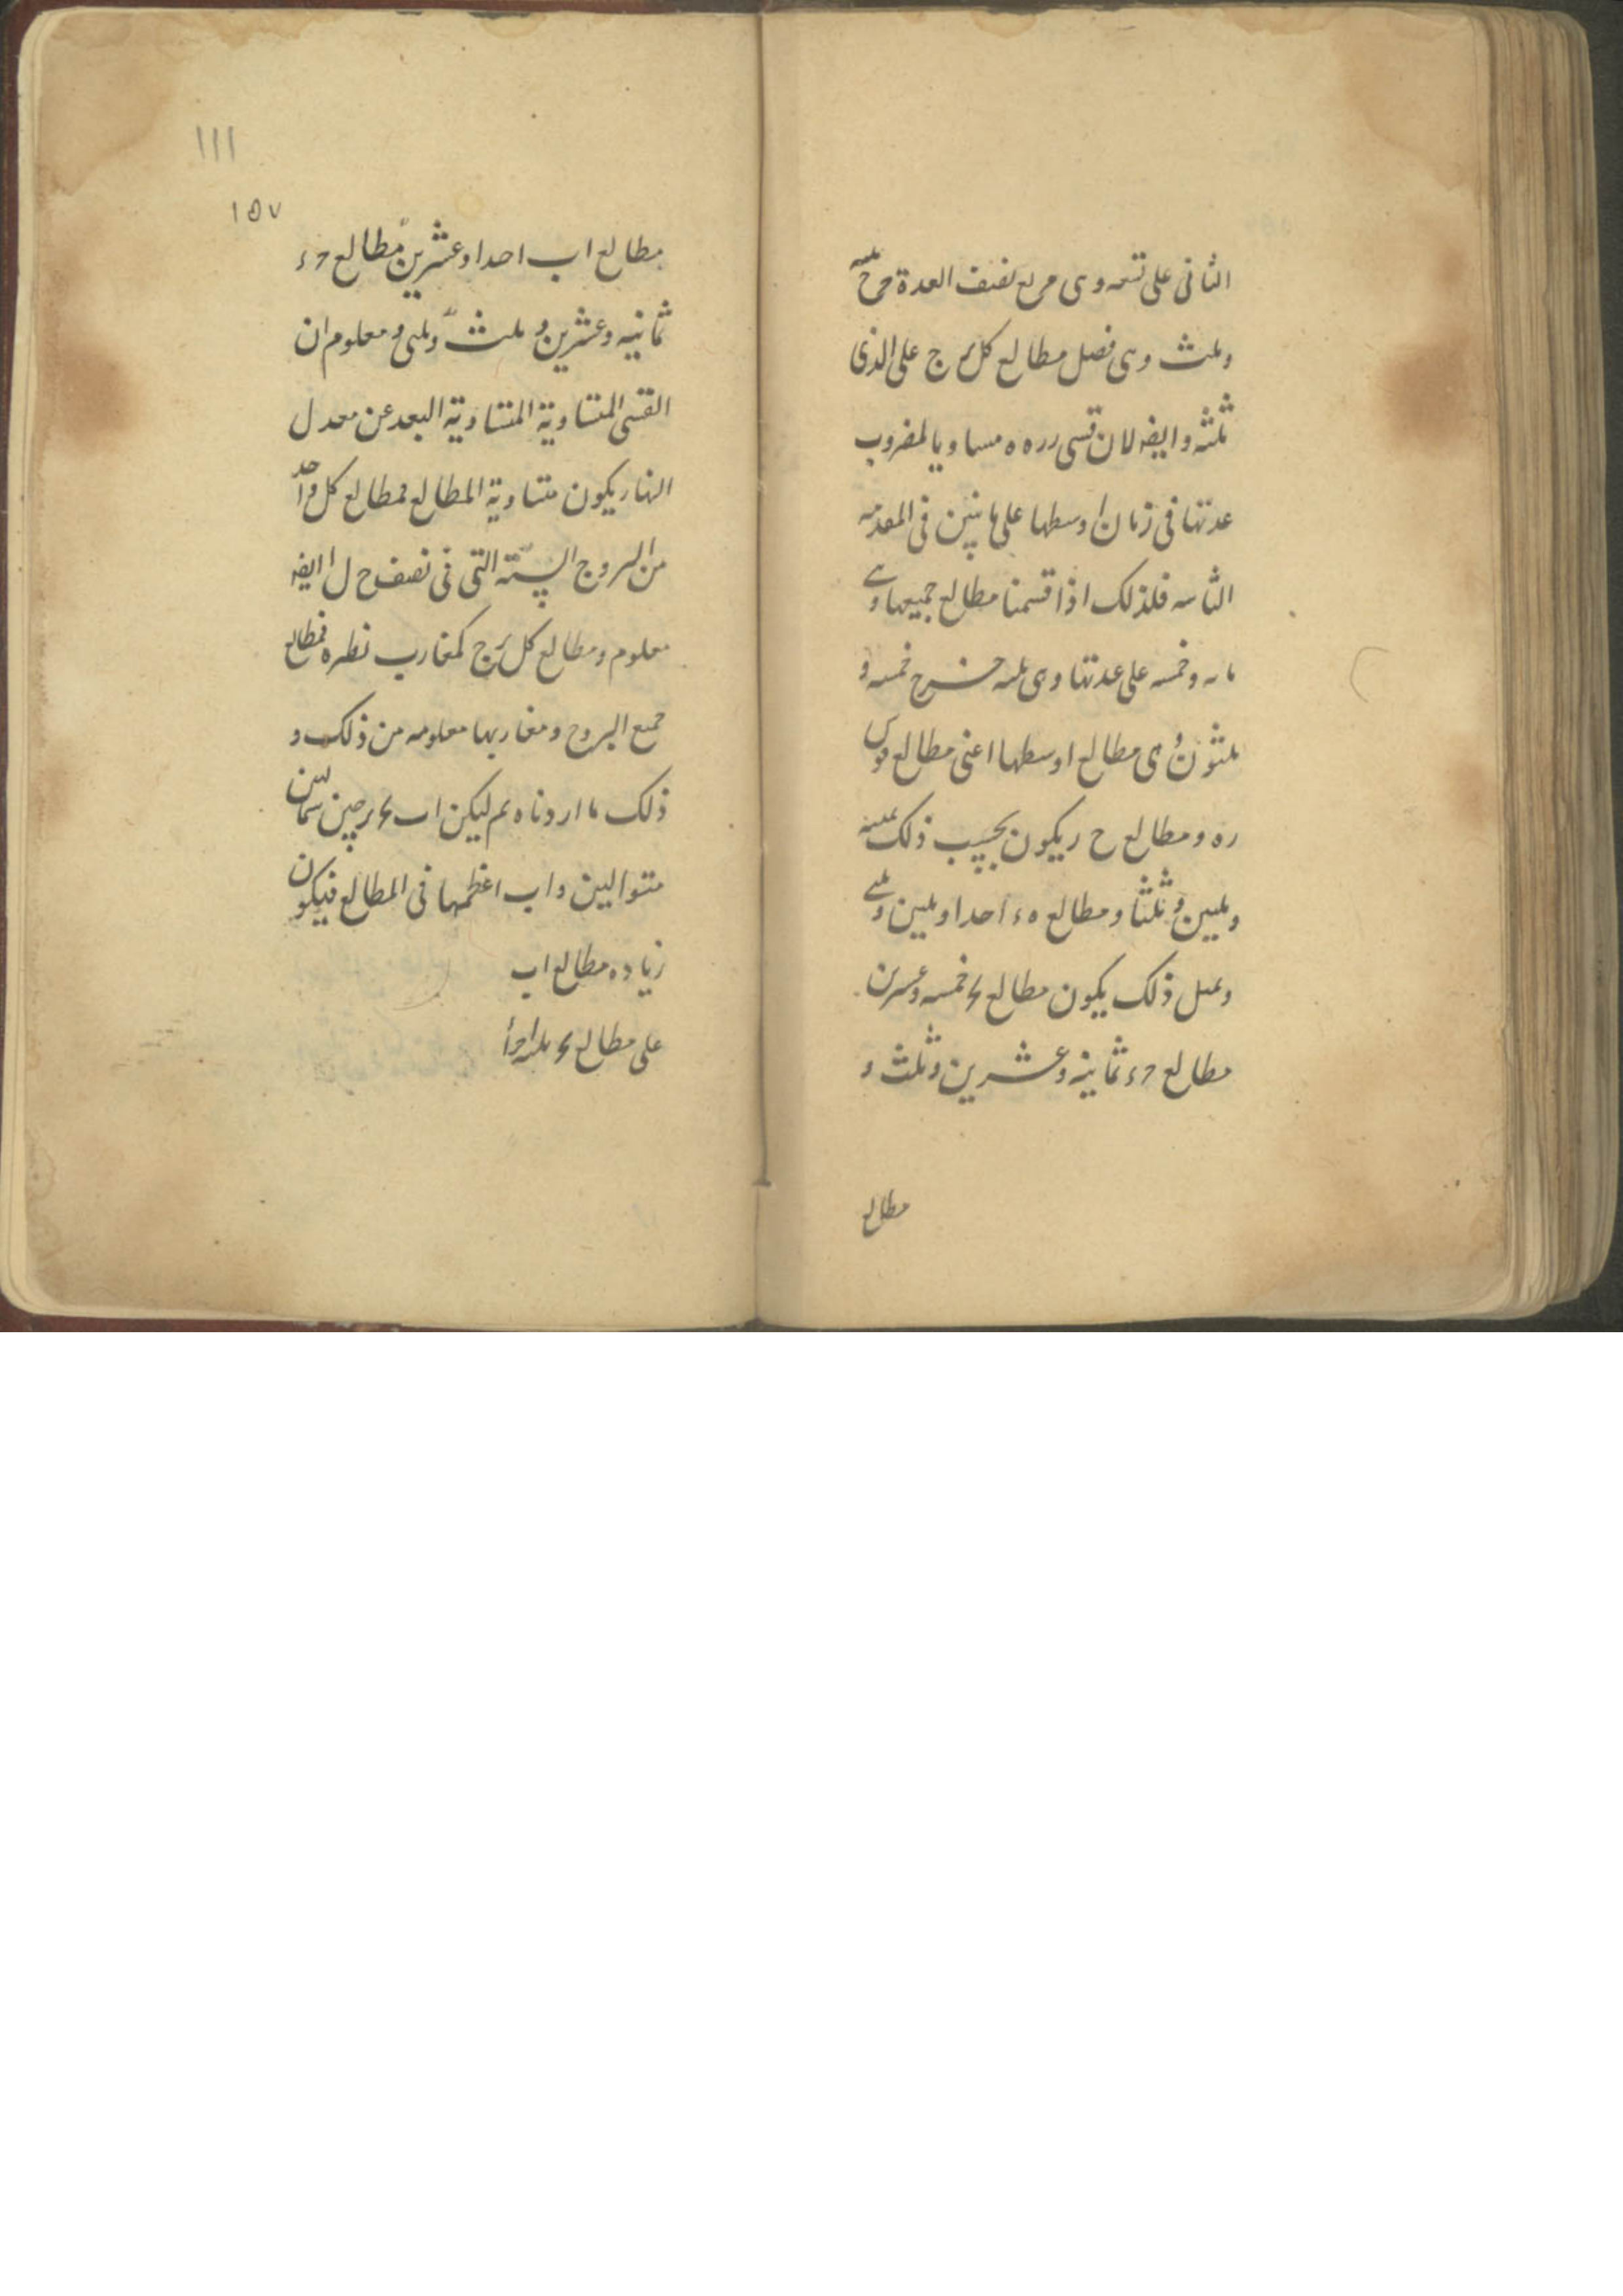 الثانى على تسعه وهى مربع نصف العدة خرج ثلثه
وثلث وهى فضل مطالع كل برج على الذى
ثلثه وايضا لان قسى رره ه مساويا لمضروب
عدتها فى زمان اوسطها على ما تبين فى المقدمه
الثانيه فلذلك اذا قسمنا مطالع جميعها وهى
مايه وخمسه على عدتها وهى ثلثه خرج خمسه و
ثلثون وهى مطالع اوسطها اعنى مطالع قوس
ره ومطالع ح ر يكون بحسب ذلك ثمنيه
وثلثين وثلثا ومطالع ه ء احدا وثلثين وثلثى
وبمثل ذلك يكون مطالع خمسه وعشرين
مطالع ء ثمانيه وعشرين وثلث و
مطالع
١١١
١٥٧
مطالع ا ب احدا وعشرين مطالع ء
ثمانيه وعشرين و ثلث وثلثى ومعلوم ان
القسى المتساوية المتساوية البعد عن معدل
النهار يكون متساوية المطالع فمطالع كل واحد
من البروج الستة التى فى نصف ح ل ا ايضا
معلوم ومطالع كل برج كمغارب نظيره فمطالع
جميع البروج ومغاربها معلومه من ذلك و
ذلك ما اردناه ثم ليكن اب برجين شماليين
متواليين و اب اعظمها فى المطالع فيكون
زياده مطالع اب
على مطالع ثلثه اجزا